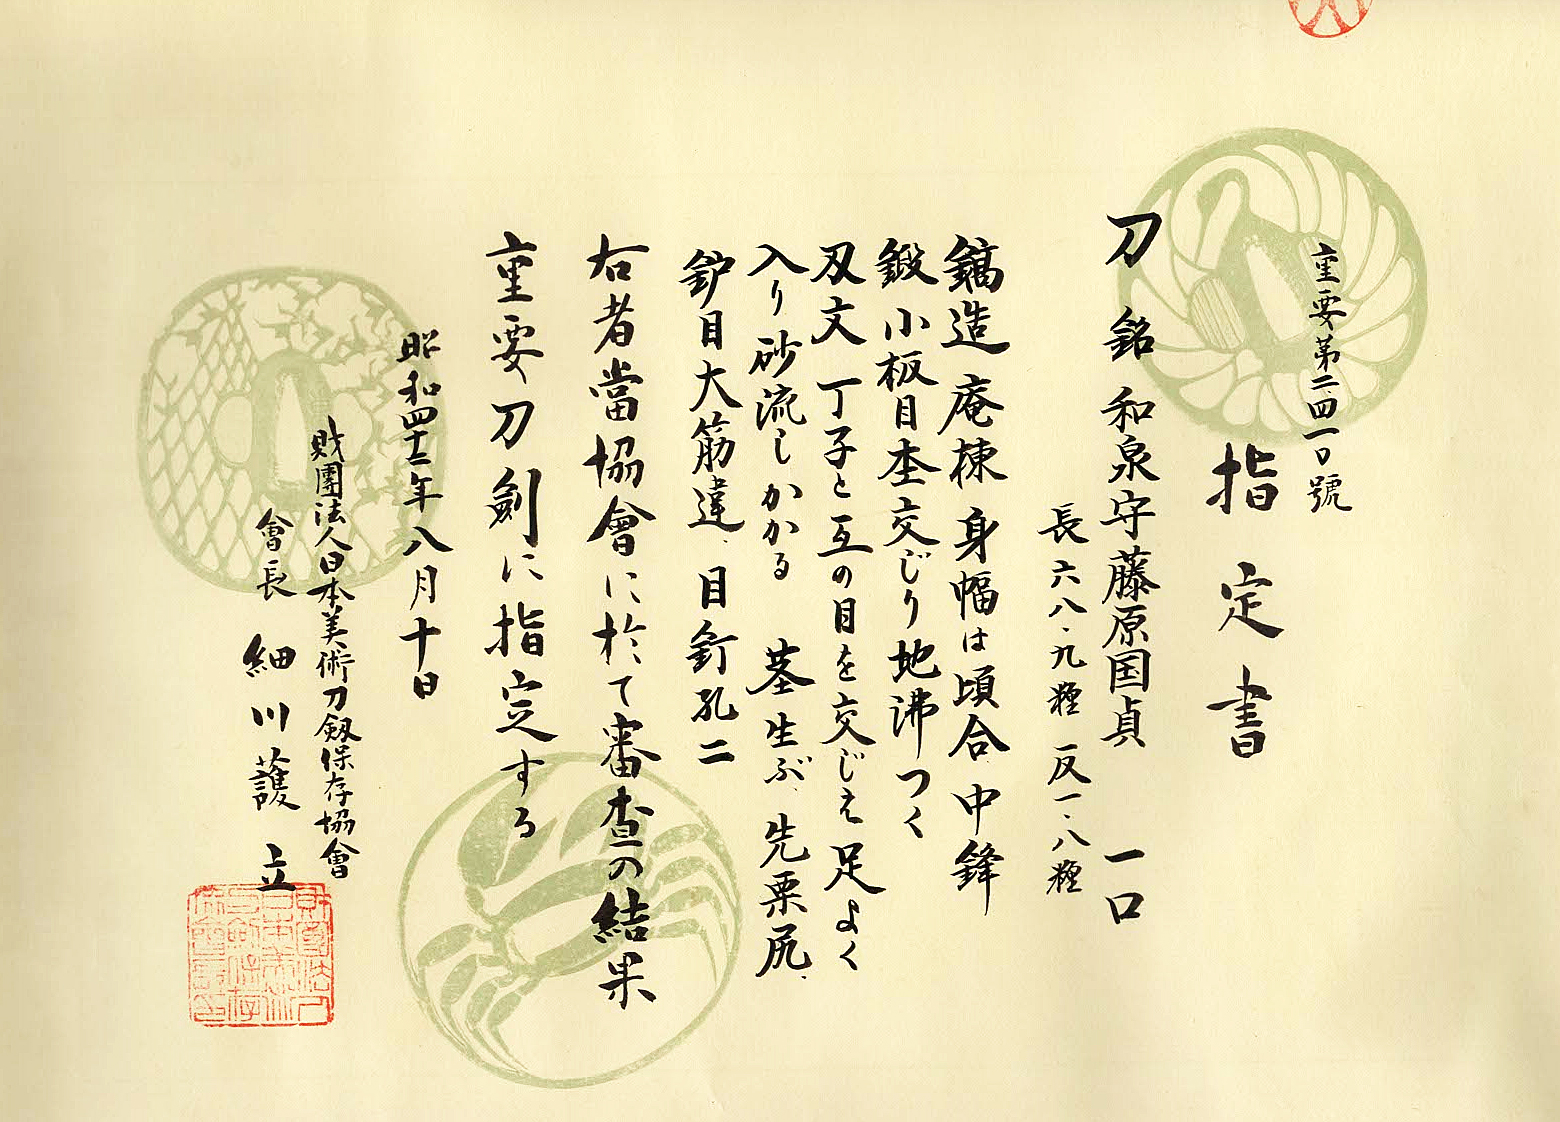 重要第二四一〇號
指定書
刀 銘 和泉守藤原国貞 一口
長 六八・九糎 反一・八糎
鎬造 庵棟 身幅は頃合 中鋒
鍛 小板目杢交じり地沸つく
刃文 丁子と互の目を交じえ足よく
入り砂流しかかる 茎 生ぶ、先栗尻、
鈩目大筋違、目釘孔二
右者當協會に於て審査の結果
重要刀劍に指定する
昭和四十二年八月十日
財團法人日本美術刀劔保存協會
會長 細川護立